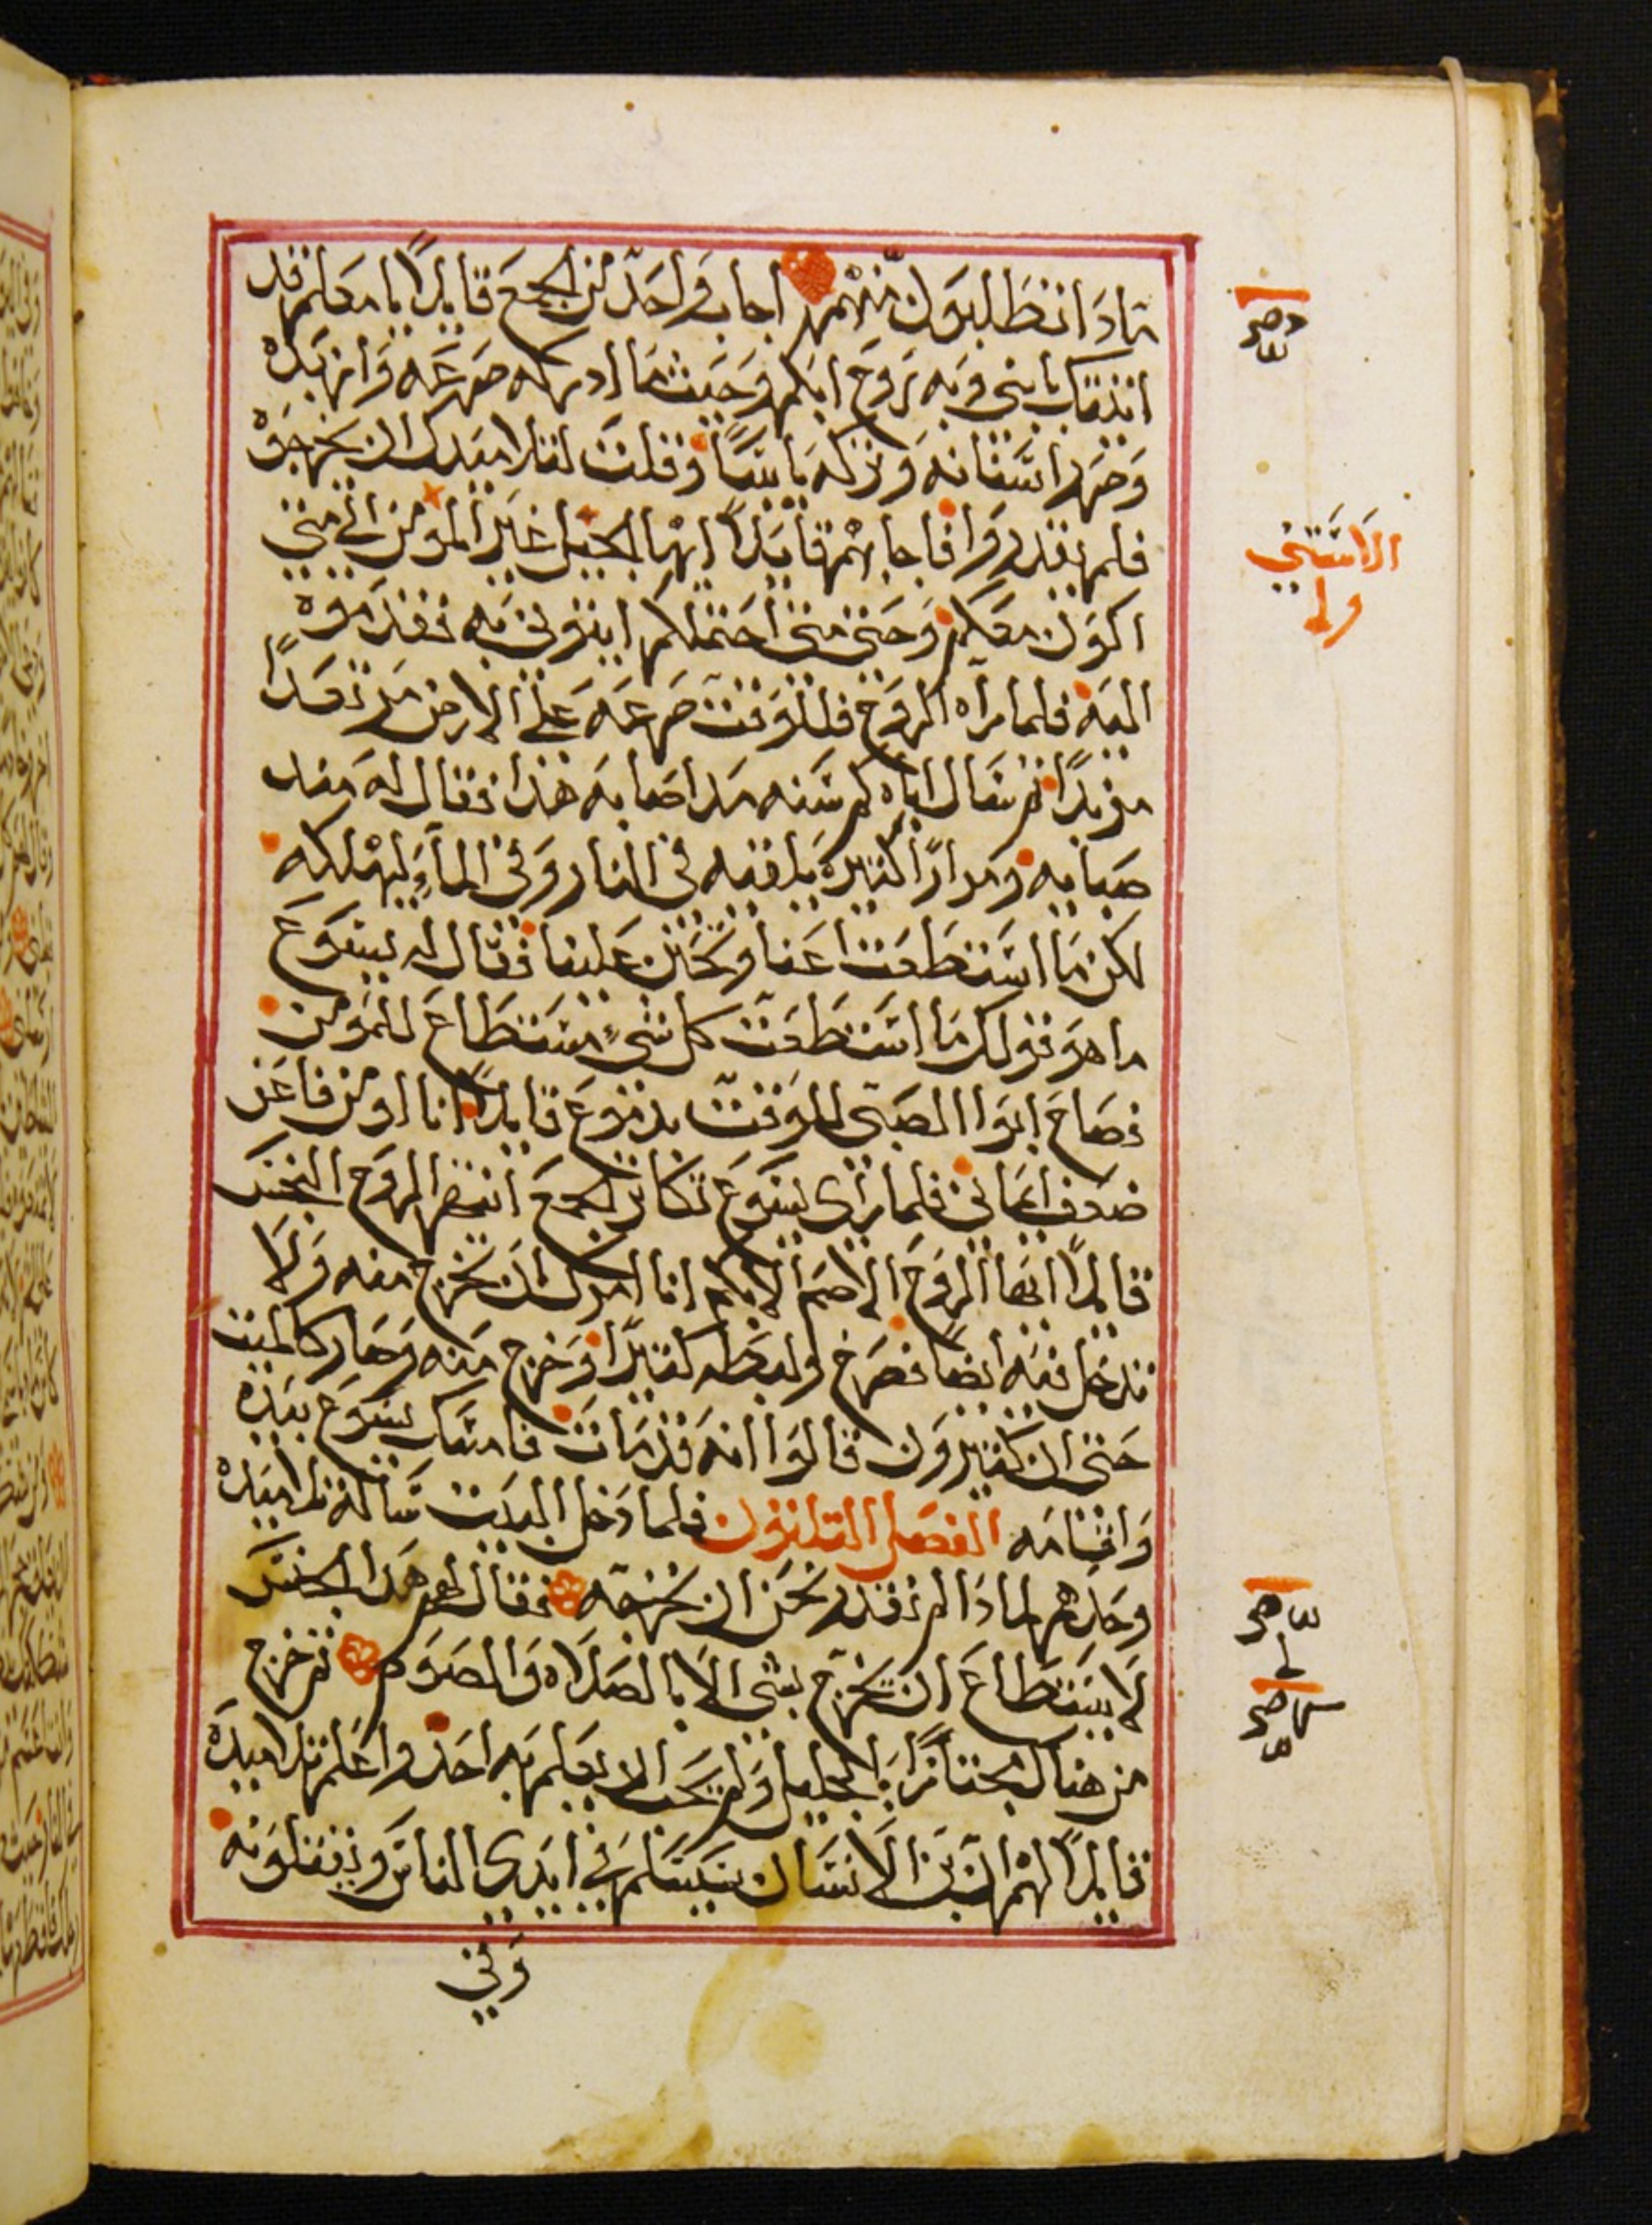 مادا تطلبون منهم اجاب واحد من الجمع قايلاً يا معلم قد
اتيتك بابني وبه روح ابكم وحيث ما ادركه صرعه وازبده
وضرر اسنانه وتركه يابسًا وقلت لتلاميدك ان يخرجوه
فلم يقدروا فاجابهم قايلاً ايها الجيل غير المومن الي متي
اكون معكم وحتي متي احتملكم ايتوني به فقدموه
اليه فلما رآه الروح فللوقت صرعه علي الارض مرتعدًا
مزبدًا ثم سال اباه كم سنه مد اصابه هدا فقال له مند
صباه ومرارًا كتيره يلقيه في النار وفي الماء ليهلكه
لكن ما استطعت اعنا وتحنن علينا فقال له يسوع
ما هو قولك ما استطعت كل شيء مستطاع للمومن
فصاح ابوا الصبي للوقت بدموع قايلاً انا اومن فاعن
ضعف ايماني فلما راى يسوع تكاثر الجمع انتهر الروح النجس
قايلاً ايها الروح الاصم الابكم انا امرك ان تخرج منه ولا
تدخل فيه ايضًا فصرخ ولبطه كتيرًا وخرج منه وصار كالميت
حتى ان كتيرون قالوا انه قد مات فامسك يسوع بيده
واقامه الفصل التلاتون فلما دخل البيت ساله تلاميده
وحدهم لمادا لم نقدر نحن ان نخرجه فقال لهم هدا الجنس
لا يستطاع ان يخرج بشي الا بالصلاه والصوم ثم خرج
من هناك مجتازًا الجليل ولم يحب ان يعلم به احد واعلم تلاميده
قايلاً لهم ان ابن الانسان سيسلم في ايدي الناس ويقتلونه
وفي
الاستي